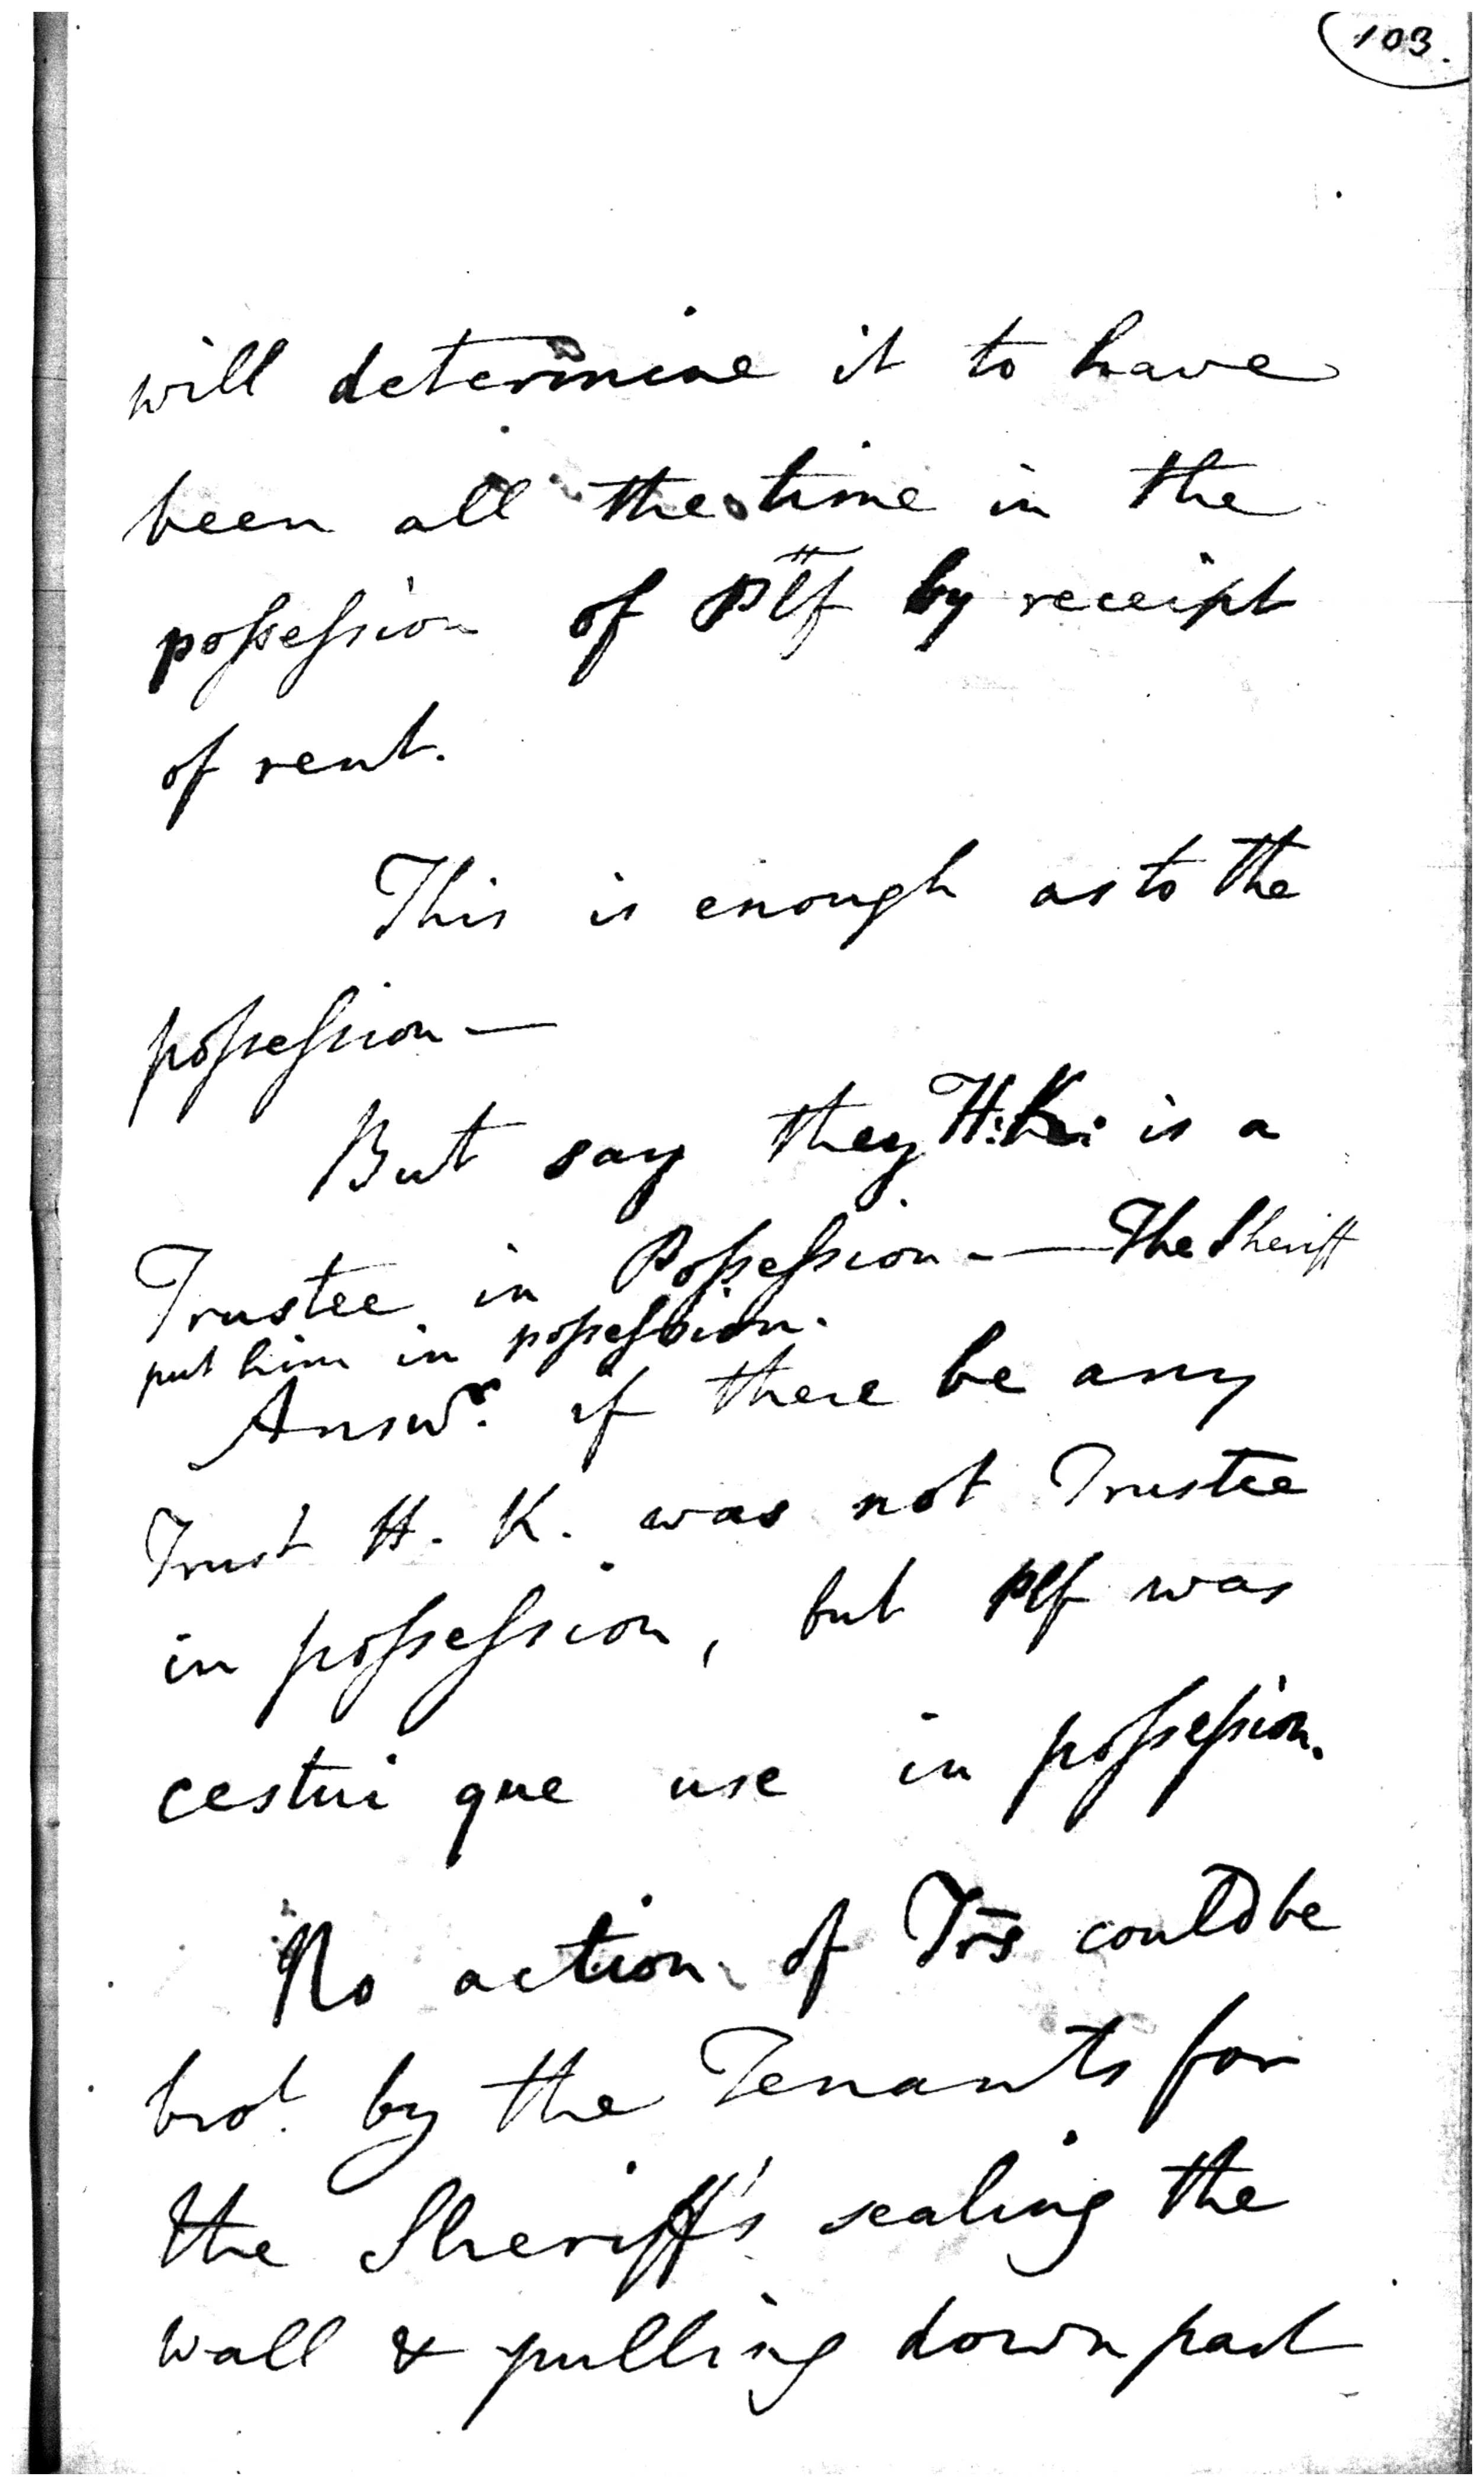 103.
will determine it to have
been all the time in the
possession of Pltf by receipt
of rent.
This is enough as to the
possession —
But say they H. K. is a
Trustee in Possession — The Sheriff
put him in possession.
Answr. if there be any
Trust H. K. was not Trustee
in possession, but Plf was
cestui que use in possession.
No action of Trs could be
brot. by the Tenants for
the Sheriff's scaling the
wall & pulling down part